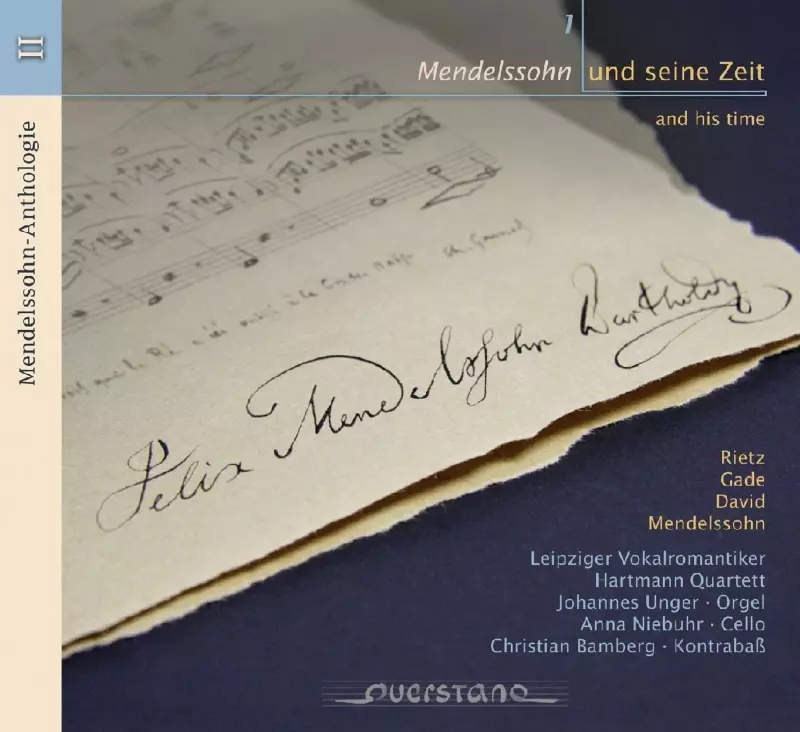 II
Mendelssohn-Anthologie
1
Mendelssohn und seine Zeit
and his time
Felix Mendelssohn Bartholdy
Rietz
Gade
David
Mendelssohn
Leipziger Vokalromantiker
Hartmann Quartett
Johannes Unger · Orgel
Anna Niebuhr · Cello
Christian Bamberg · Kontrabaß
querstand